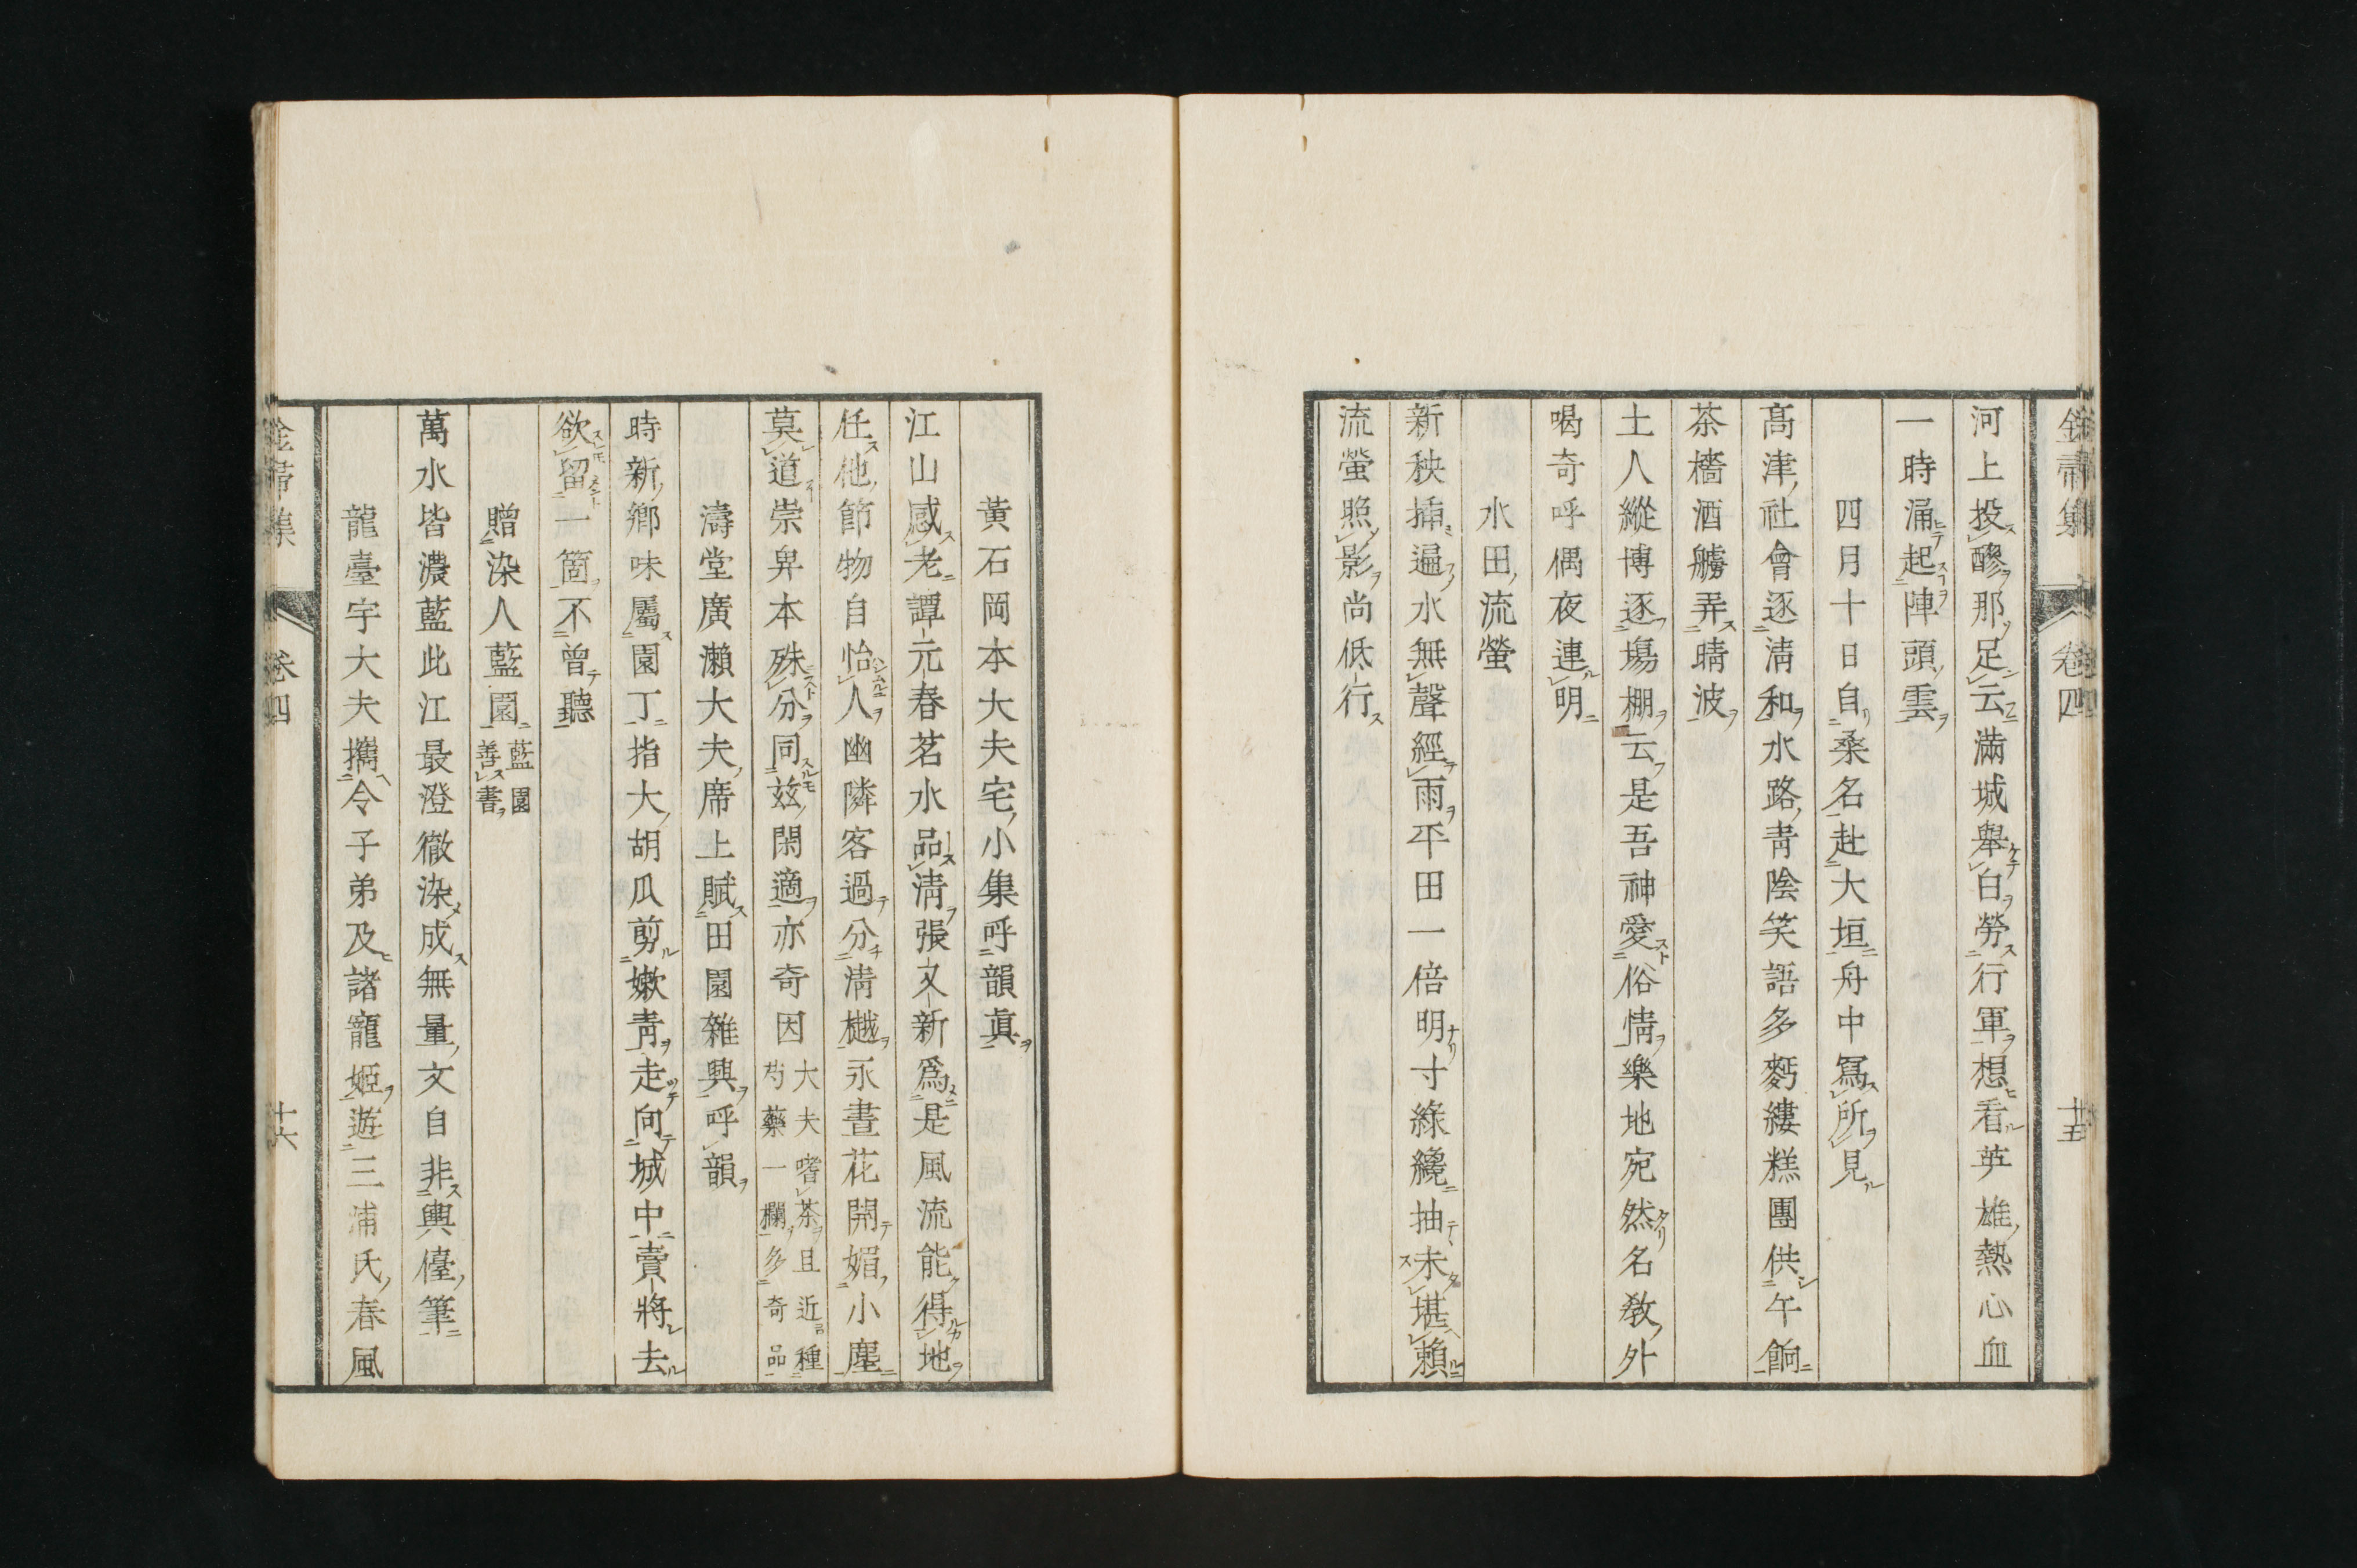 金帚集 卷四 十五
河上投醪那足云滿城舉白勞行軍想看英雄熱心血
一時涌起陣頭雲
四月十日自桑名赴大垣舟中寫所見
高津社會逐淸和水路靑陰笑語多麪縷糕團供午餉
茶檣酒艣弄晴波
土人縱博逐場棚云是吾神愛俗情樂地宛然名敎外
喝奇呼偶夜連明
水田流螢
新秧揷遍水無聲經雨平田一倍明寸綠纔抽未堪賴
流螢照影尚低行
黃石岡本大夫宅小集呼韻眞
江山感老譚元春茗水品淸張又新爲是風流能得地
任他節物自怡人幽隣客過分淸樾永晝花開媚小塵
莫道崇卑本殊分同玆閑適亦奇因
大夫嗜茶且近種
芍藥一欄多奇品
濤堂廣瀨大夫席上賦田園雜興呼韻
時新鄉味屬園丁指大胡瓜剪嫩靑走向城中賣將去
欲留一箇不曾聽
贈染人藍園
藍園
善書
萬水皆濃藍此江最澄徹染成無量文自非輿儓筆
龍臺宇大夫攜令子弟及諸寵姬遊三浦氏春風
金帚集 卷四 十六